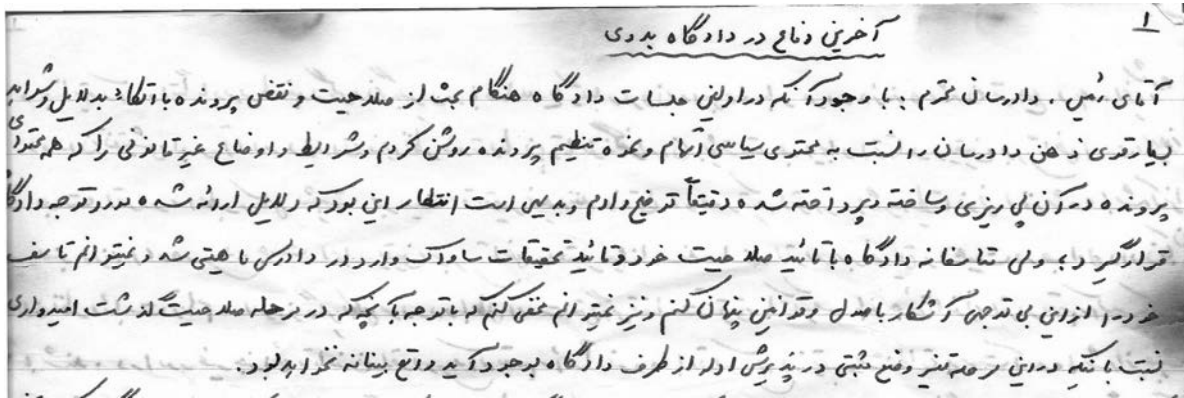 ۱
آخرین دفاع در دادگاه بدوی
آقای رئیس، دادرسان محترم: با وجود آنکه در اولین جلسات دادگاه هنگام بحث از صلاحیت و نقض پرونده با اتکاء بدلایل و شواهد
بسیار قوی ذهن دادرسان را نسبت به محتوی سیاسی اتهام و نحوه تنظیم پرونده روشن کردم و شرایط و اوضاع غیر قانونی را که همه محتوای
پرونده در آن پی ریزی و ساخته و پرداخته شده دقیقاً توضیح دادم و بدیهی است انتظار این بود که دلایل ارائه شده مورد توجه دادگاه
قرار گیرد؛ ولی متاسفانه دادگاه با تائید صلاحیت خود و تائید تحقیقات ساواک وارد در دادرسی ماهیتی شد و نمیتوانم تاسف
خود را از این بی توجهی آشکار باصول و قوانین پنهان کنم و نیز نمیتوانم مخفی کنم که با توجه بآنچه که در مرحله صلاحیت گذشت امیدواری
نسبت باینکه در این مرحله تغییر وضع مثبتی در پذیرش ادله از طرف دادگاه بوجود آید واقع بینانه نخواهد بود.